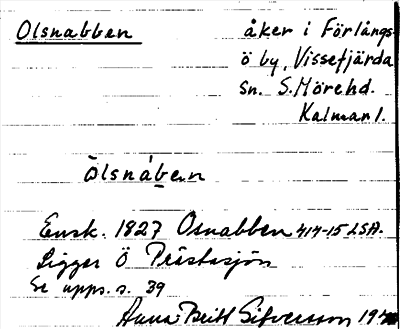 Olsnabben åker i Förlångs-
ö by, Vissefjärda
sn. S. Möre hd.
Kalmar l.
ōlsnáben
Ensk. 1827 Osnabben 414-15 LSA.
Ligger Ö Trästasjön
Se upps. s. 39
Anna-Britt Sifversson 19